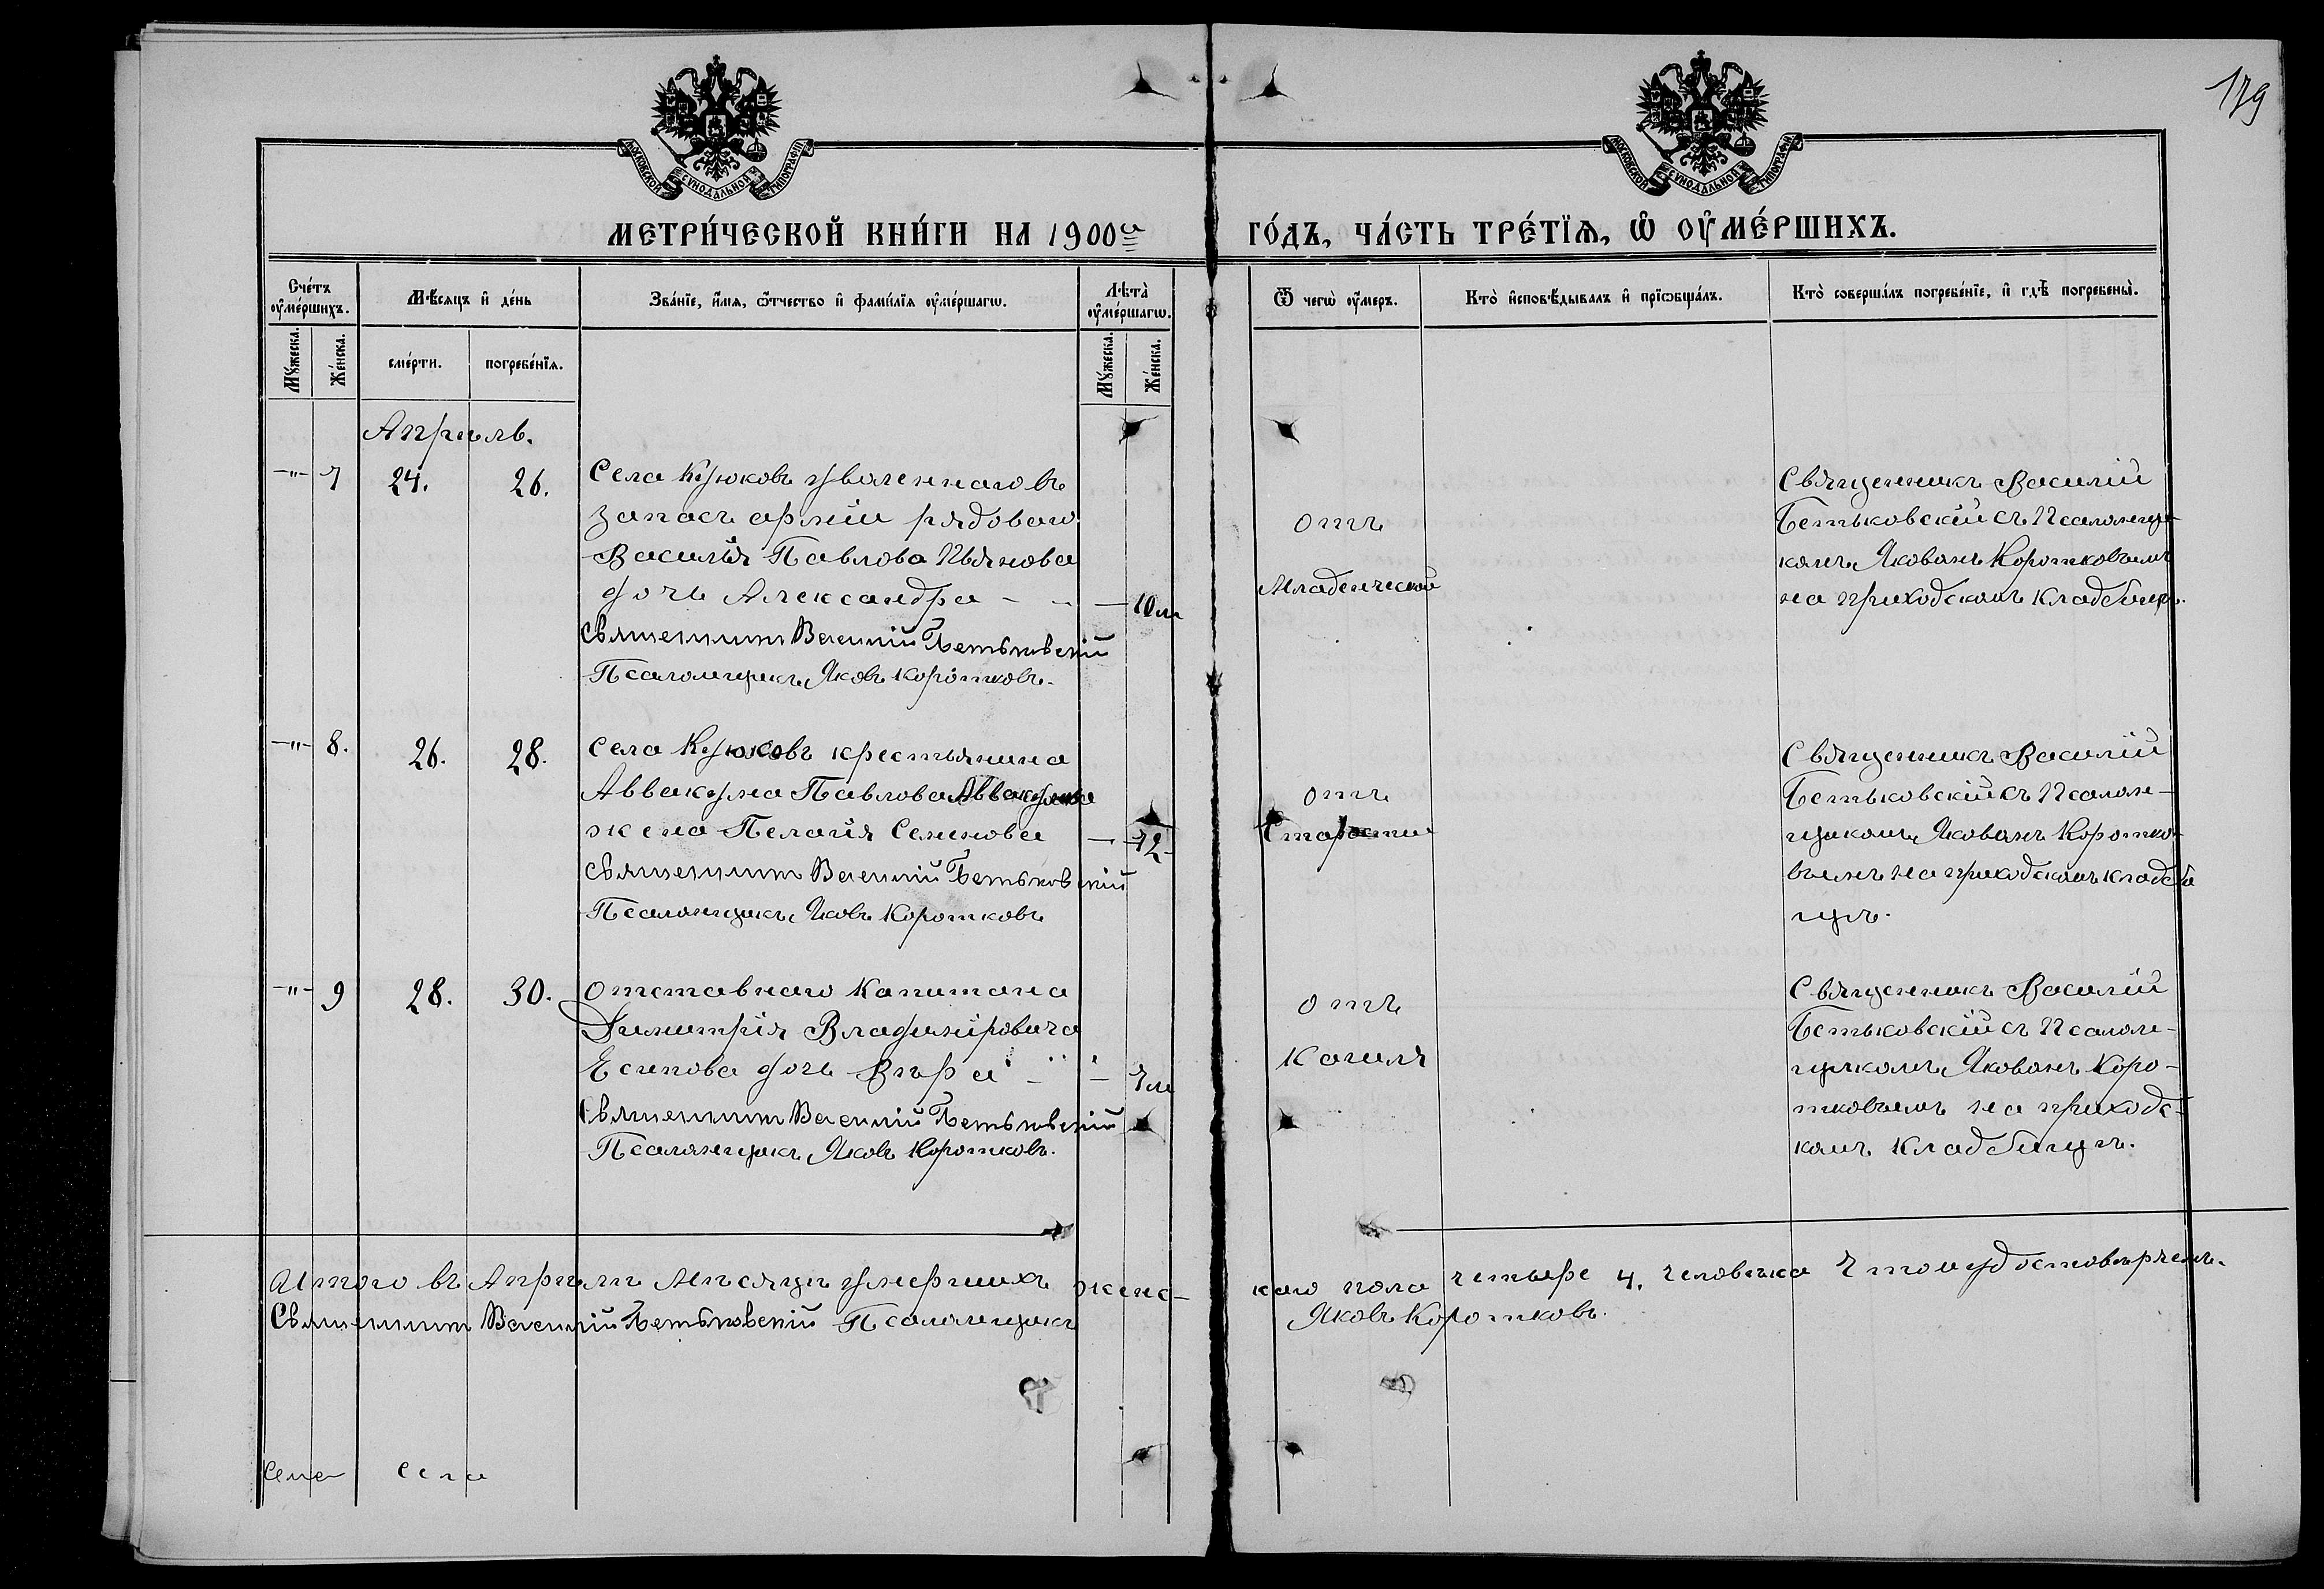 179
МОСКОВСКОЙ СѴНОДАЛЬНОЙ ТИПОГРАФІИ
МОСКОВСКОЙ СѴНОДАЛЬНОЙ ТИПОГРАФІИ
МЕТРИ́ЧЕСКОЙ КНИ́ГИ НА 1900й ГО́ДЪ, ЧА́СТЬ ТРЕ́ТЇѦ, Ѡ҆ ОУ҆МЕ́РШИХЪ.
Сче́тъ оу҆ме́ршихъ.
Мѣ́сяцъ и҆ де́нь
Зва́нїе, и҆́мѧ, ѻ҆́тчество и҆ фами́лїѧ оу҆ме́ршагѡ.
Лѣта̀ оу҆ме́ршагѡ.
Ѿ чегѡ̀ оу҆́меръ.
Кто̀ и҆сповѣ́дывалъ и҆ прїѡбща́лъ.
Кто̀ соверша́лъ погребе́нїе, и҆ гдѣ̀ погребены̀.
Мꙋ́жеска.
Же́нска.
сме́рти.
погребе́нїѧ.
Мꙋ́жеска.
Же́нска.
Апрѣль.
-"- 7 24. 26.
Села Крюковъ уволеннаго въ
запасъ арміи рядоваго
Василія Павлова Пьянова
дочь Александра - - - 10 м
Священникъ Василій Бетьковскій
Псаломщикъ Яковъ Коротковъ.
отъ
Младенческой
Священникъ Василій
Бетьковскій съ Псаломщи-
комъ Яковомъ Коротковымъ
на приходскомъ кладбищѣ.
-"- 8. 26. 28.
Села Крюковъ крестьянина
Аввакума Павлова Аввакумова
жена Пелагія Семенова - 72-
Священникъ Василій Бетьковскій
Псаломщикъ Яковъ Коротковъ
отъ
Старости
Священникъ Василій
Бетьковскій съ Псалом-
щикомъ Яковомъ Коротко-
вымъ на приходскомъ кладби
щѣ.
-"- 9 28. 30.
Отставнаго Капитана
Димитрія Владиміровича
Есипова дочь Вѣра - - 7 м
Священникъ Василій Бетьковскій
Псаломщикъ Яковъ Коротковъ.
отъ
Кашля
Священникъ Василій
Бетьковскій съ Псалом-
щикомъ Яковомъ Коро-
тковымъ на приходс-
комъ Кладбищѣ.
Итого въ Апрѣлѣ Мѣсяцѣ умершихъ женс-
каго пола четыре 4. человѣка Въ томъ удостовѣряемъ.
Священникъ Василій Бетьковскій Псаломщикъ
Яковъ Коротковъ.
села